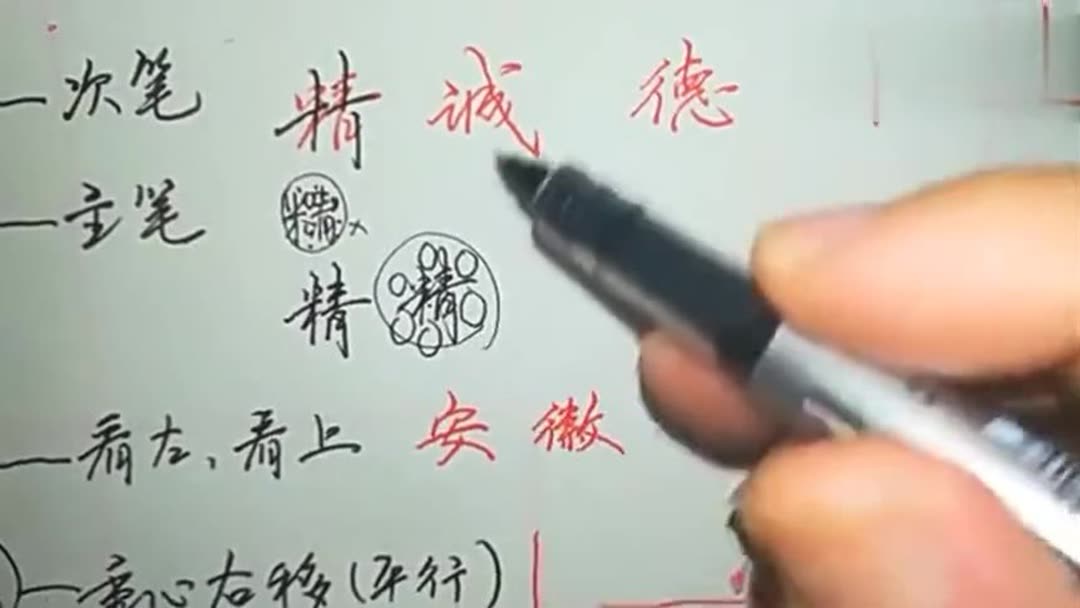 次笔 精 诚 德
主笔 精 ×
精 精
看左、看上 安 徽
重心右移(平行)